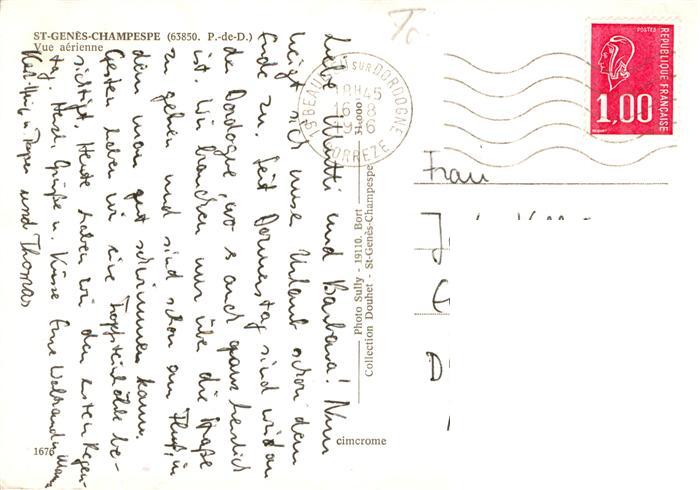 ST-GENÈS-CHAMPESPE (63850. P.-de-D.)
Vue aérienne
Liebe Mutti und Barbara! Nun
neigt sich unser Urlaub schon dem
Ende zu. Seit Donnerstag sind wir an
der Dordogne, wo es auch ganz herrlich
ist. Wir brauchen nur über die Straße
zu gehen und sind schon am Fluß, in
dem man gut schwimmen kann.
Gestern haben wir eine Tropfsteinhöhle be-
sichtigt. Heute haben wir den ersten Regen-
tag. Herzl. Grüße u. Küsse Eure
und Thomas
1676
Photo Sully - 19110. Bort 31.000
Collection Douhet - St-Genès-Champespe
cimcrome
19 BEAULIEU SUR DORDOGNE
18H45
16-8
CORREZE
POSTES
REPUBLIQUE FRANÇAISE
1,00
Frau